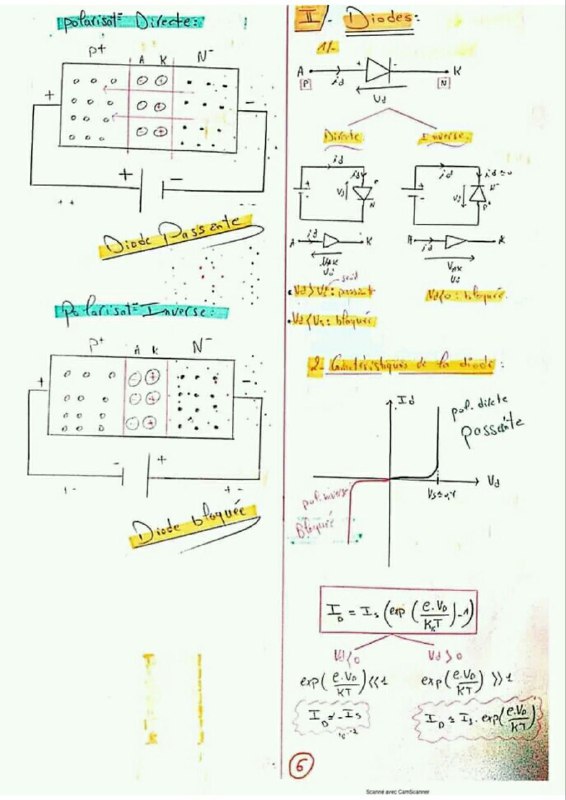 polarisat° Directe:
P+ A K N-
+ -
+ -
++
Diode Passante
polarisat° Inverse:
P+ A K N-
+ -
- +
+- +-
Diode bloquée
II - Diodes:
1/-
A id K
P N
Vd
Directe Inverse
id id
id id≤0
Vd P N Vd N- P+
A id K A id K
VAK VAK
Vd Vd
seuil
• Vd > Vs : passant Vd<0 : bloquée.
• Vd < Vs : bloquée
2. Caractéristiques de la diode:
Id
pol. directe
passante
Vd
pol. inverse
Bloquée
I_D = I_s (exp (e.V_D / K_B T) - 1)
Vd < 0 Vd > 0
exp(e.V_D / KT) << 1 exp(e.V_D / KT) >> 1
I_D ≈ -I_s I_D ≈ I_s. exp(e.V_D / KT)
6
Scanné avec CamScanner